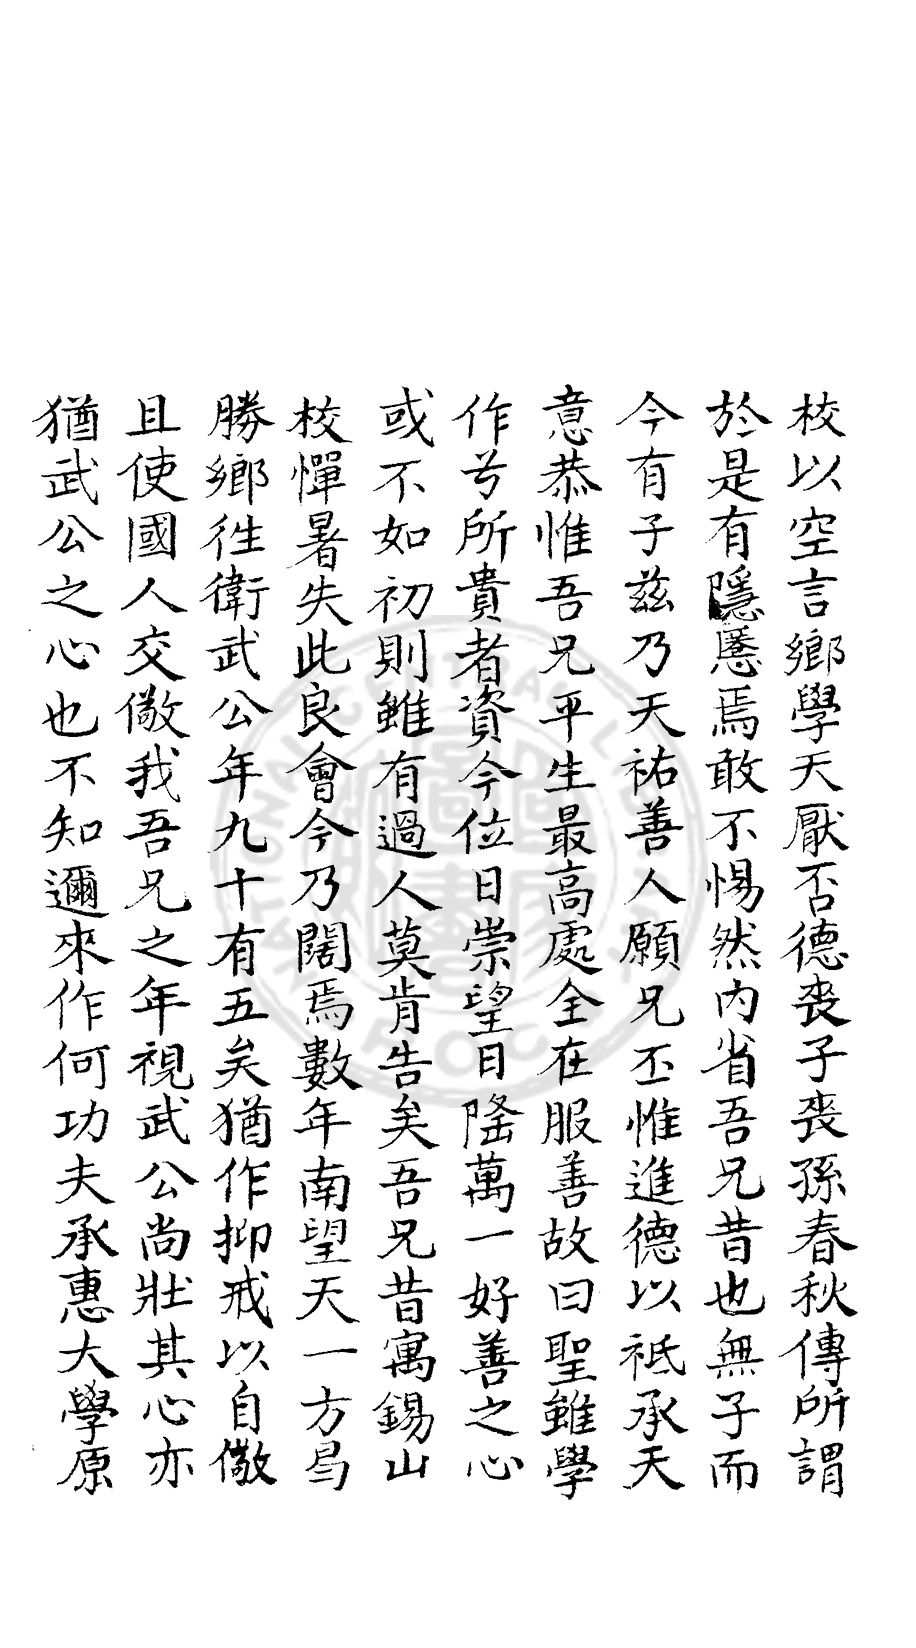 校以空言鄉學天厭否德喪子喪孫春秋傳所謂
於是有隱慝焉敢不惕然內省吾兄昔也無子而
今有子茲乃天祐善人願兄丕惟進德以祗承天
意恭惟吾兄平生最高處全在服善故曰聖雖學
作兮所貴者資今位日崇望日隆萬一好善之心
或不如初則雖有過人莫肯告矣吾兄昔寓錫山
校憚暑失此良會今乃闊焉數年南望天一方曷
勝鄉徃衛武公年九十有五矣猶作抑戒以自儆
且使國人交儆我吾兄之年視武公尚壯其心亦
猶武公之心也不知邇來作何功夫承惠大學原